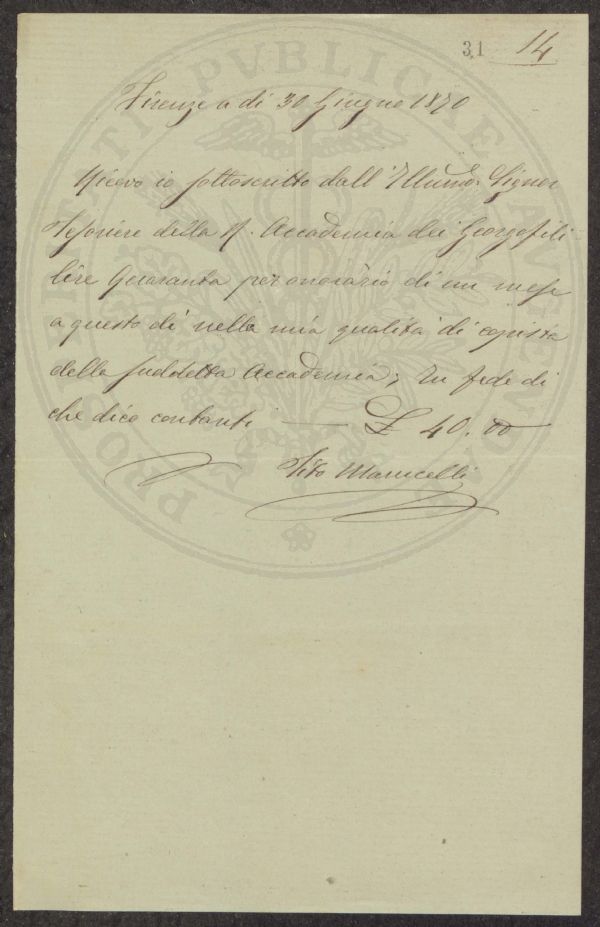 31 14
Firenze a dì 30 Giugno 1870
Ricevo io sottoscritto dall'Illumo. Signor
Tesoriere della R. Accademia dei Georgofili
lire Quaranta per onorario di un mese
a questo dì nella mia qualità di copista
della suddetta Accademia; In fede di
che dico contanti — £ 40.00
Tito Manucelli
PROSPERITATI PVBLICAE AVGENDAE